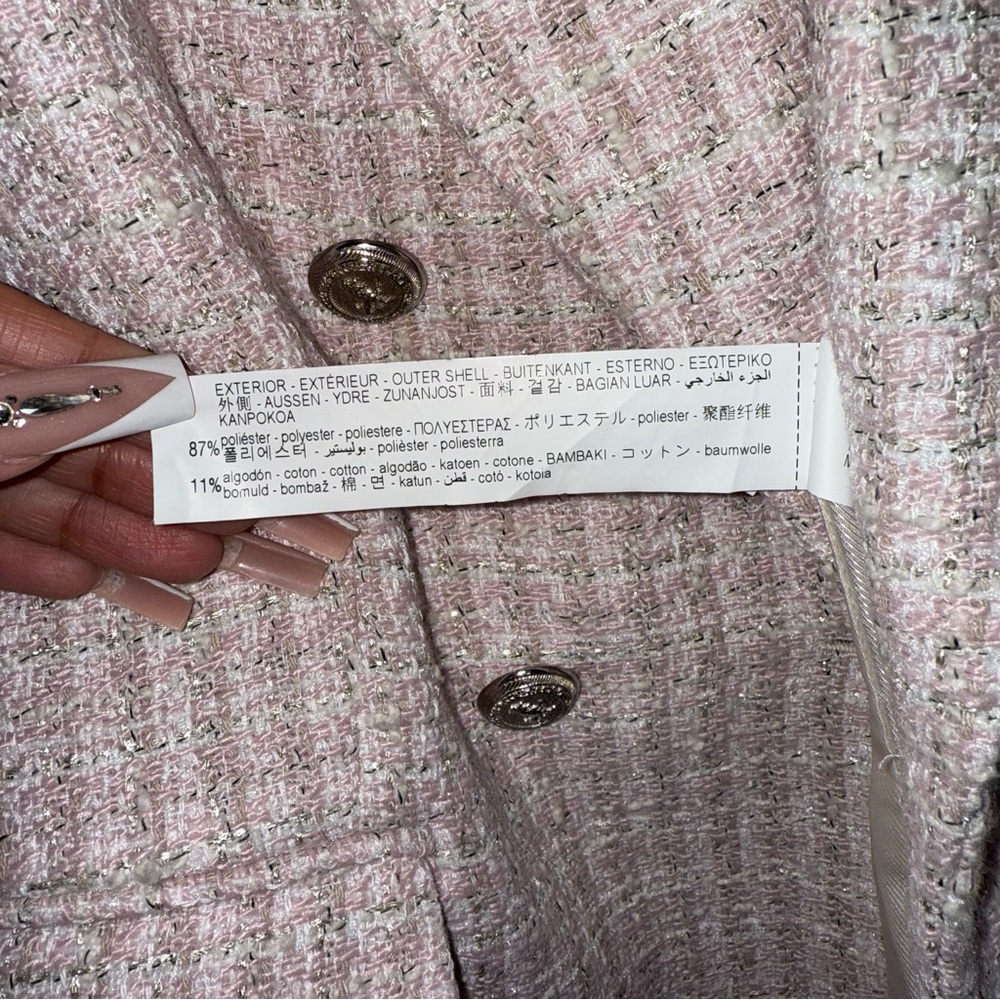 EXTERIOR - EXTÉRIEUR - OUTER SHELL - BUITENKANT - ESTERNO - ΕΞΩΤΕΡΙΚΟ
外側 - AUSSEN - YDRE - ZUNANJOST - 面料 - 겉감 - BAGIAN LUAR - الجزء الخارجي
KANPOKOA
87% poliéster - polyester - poliestere - ΠΟΛΥΕΣΤΕΡΑΣ - ポリエステル - poliester - 聚酯纤维
폴리에스터 - بوليستير - polièster - poliesterra
11% algodón - coton - cotton - algodão - katoen - cotone - BAMBAKI - コットン - baumwolle
bomuld - bombaž - 棉 - 면 - katun - قطن - cotó - kotoia